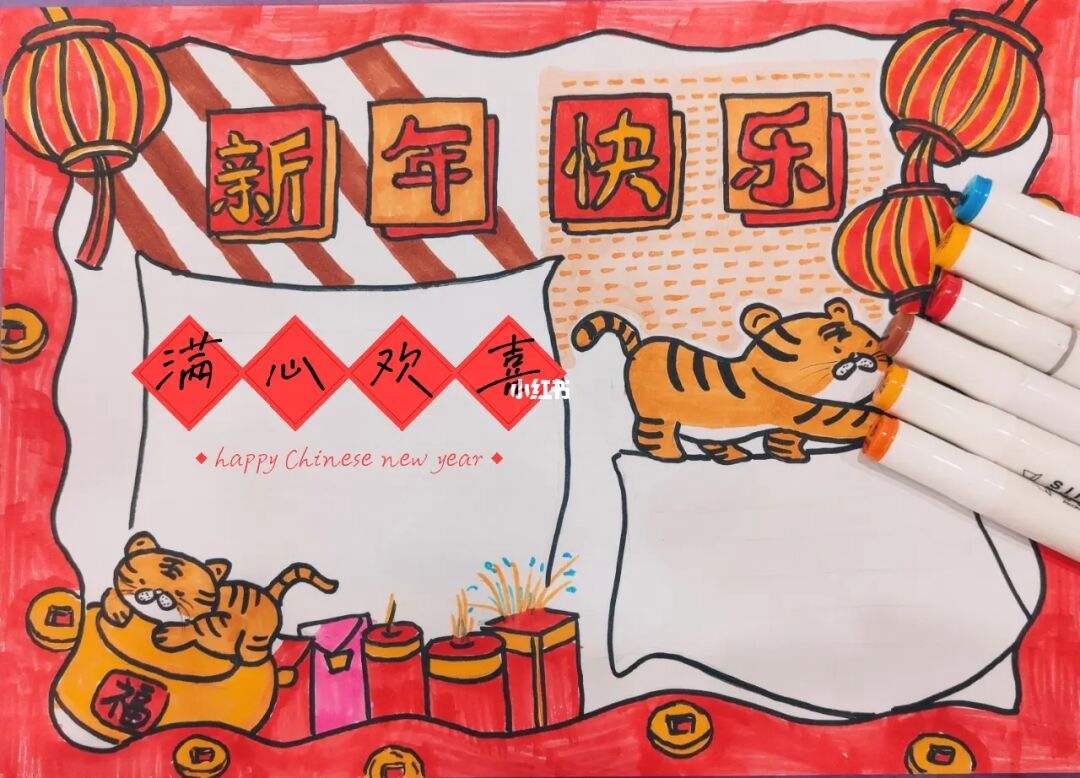 新年快乐
满心欢喜
小红书
happy Chinese new year
福